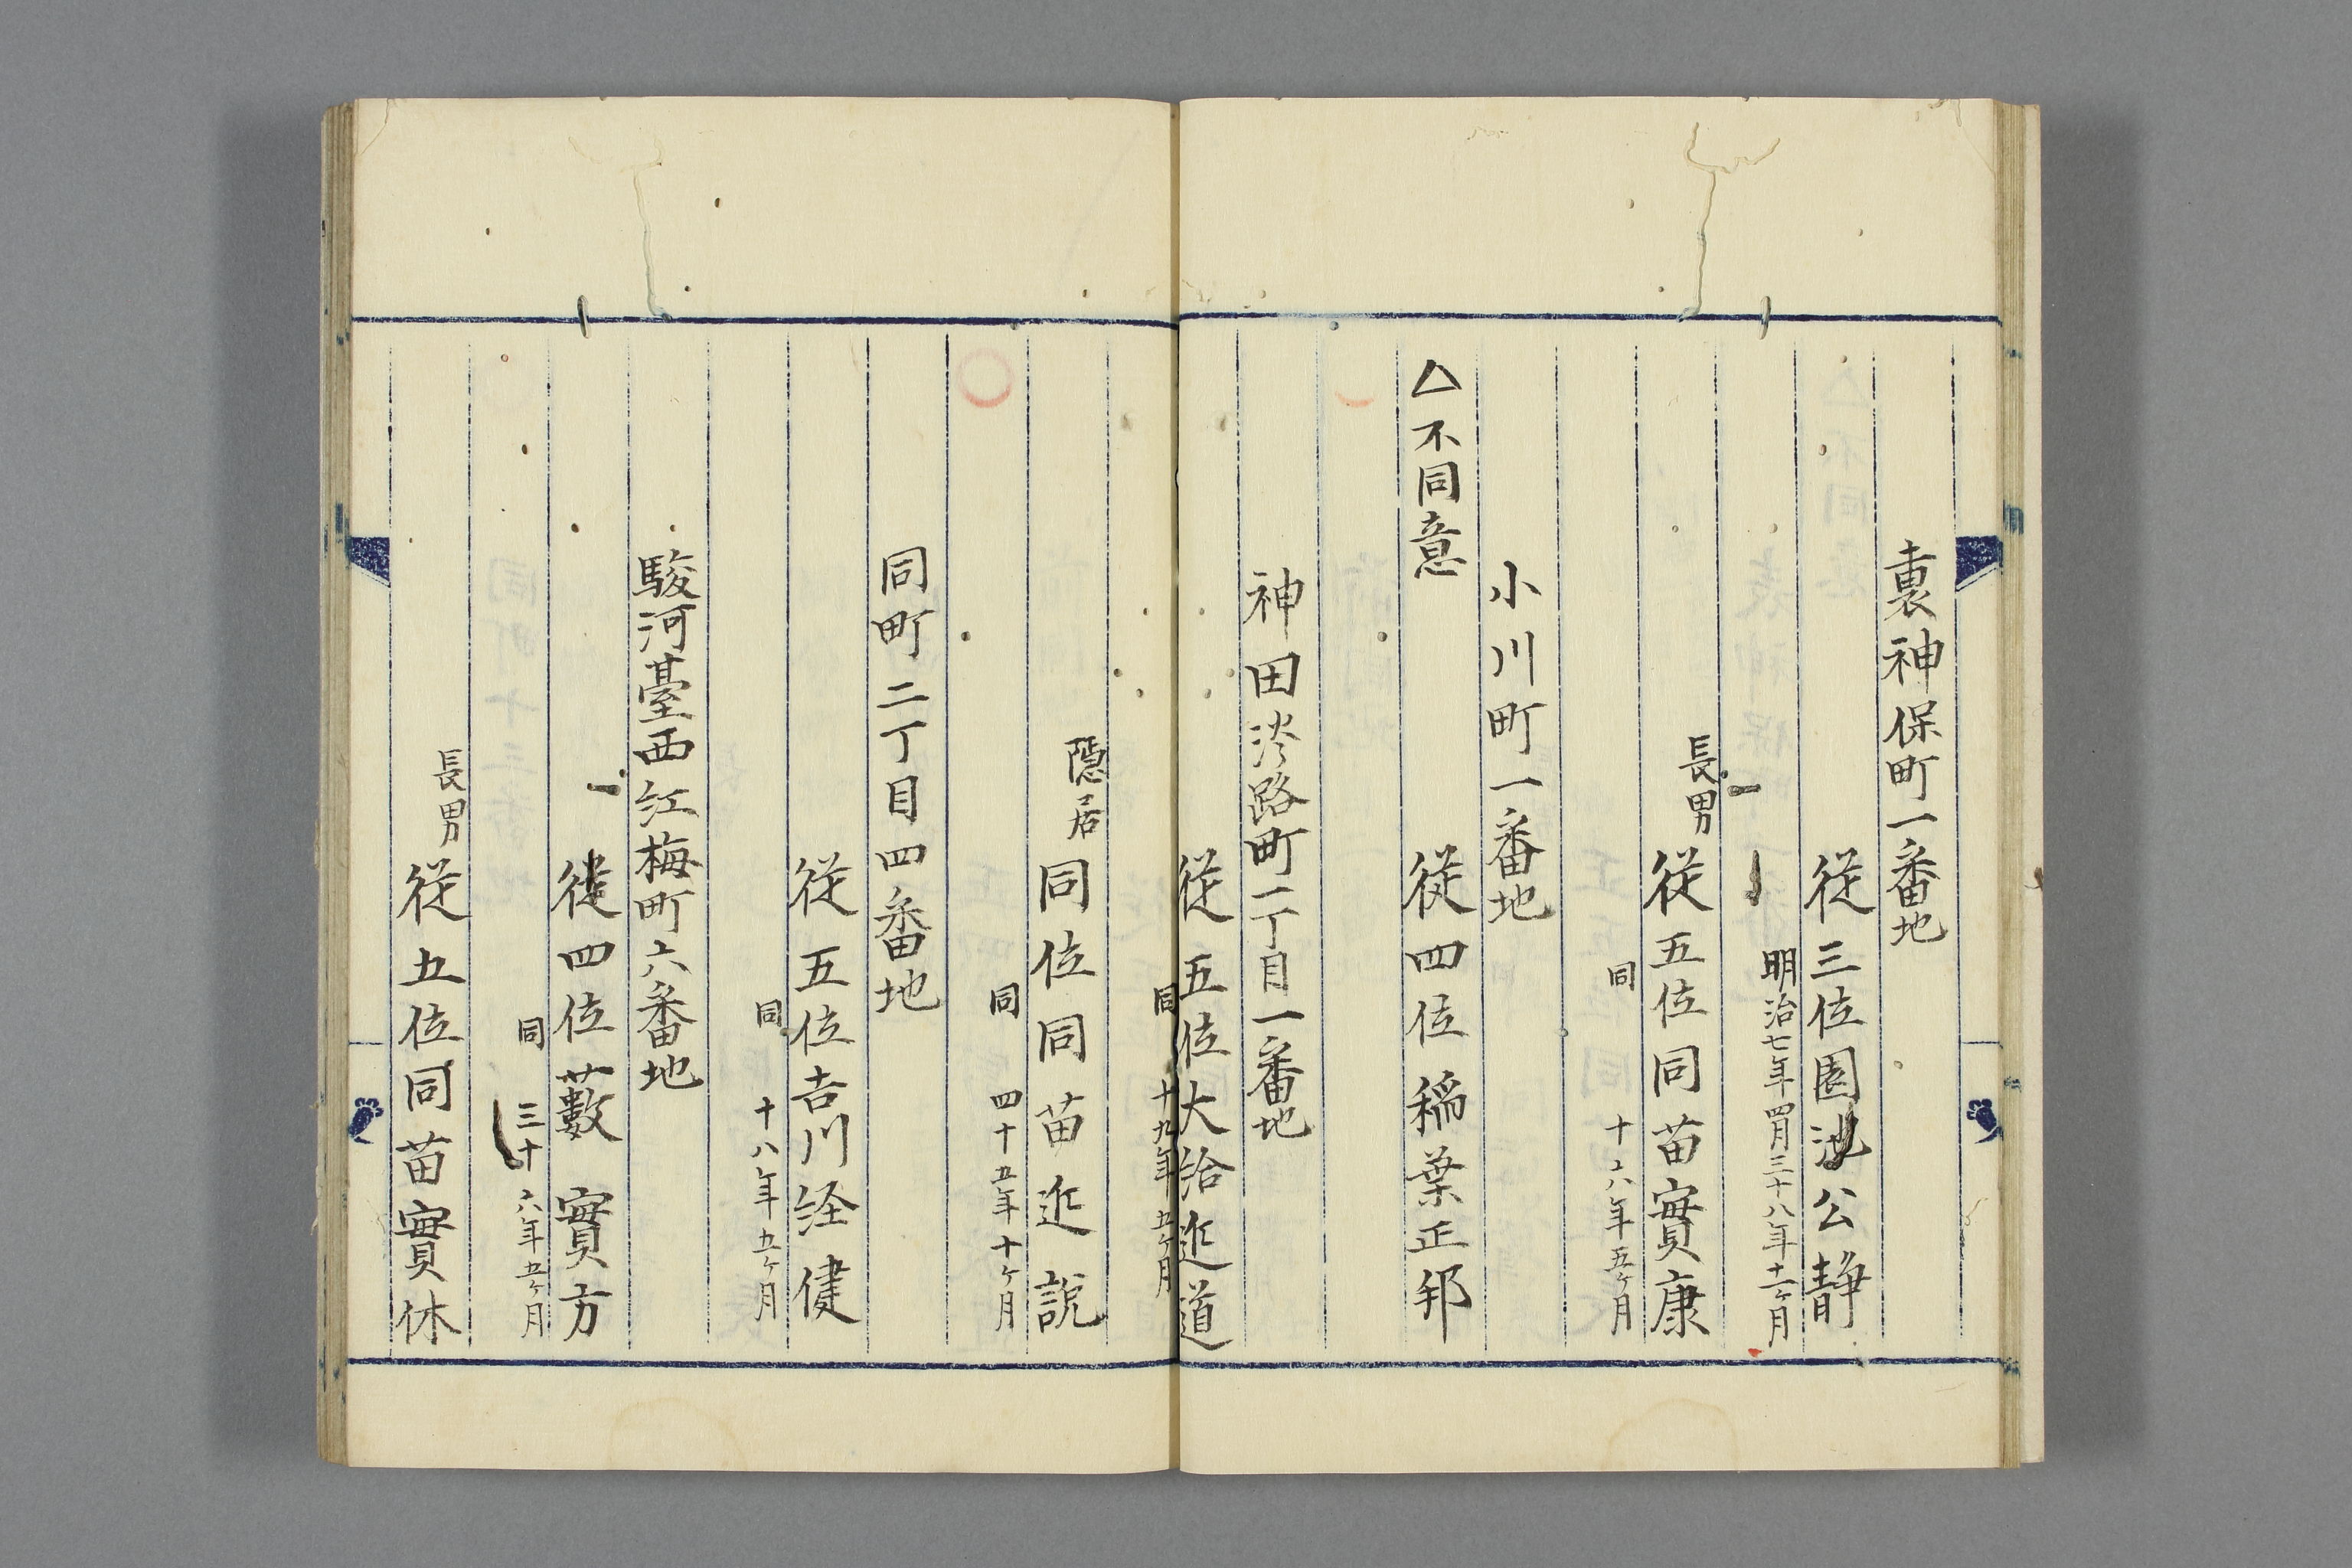 裏神保町一番地
従三位園池公静
明治七年四月三十八年十一ヶ月
長男
従五位同苗實康
同 十六年五ヶ月
小川町一番地
△不同意
従四位稲葉正邦
神田淡路町二丁目一番地
従五位大給近道
同 十九年五ヶ月
隠居
同位同苗近説
同 四十五年十ヶ月
同町二丁目四番地
従五位吉川経健
同 十八年五ヶ月
駿河臺西紅梅町六番地
従四位藪實方
同 三十六年五ヶ月
長男
従五位同苗實休